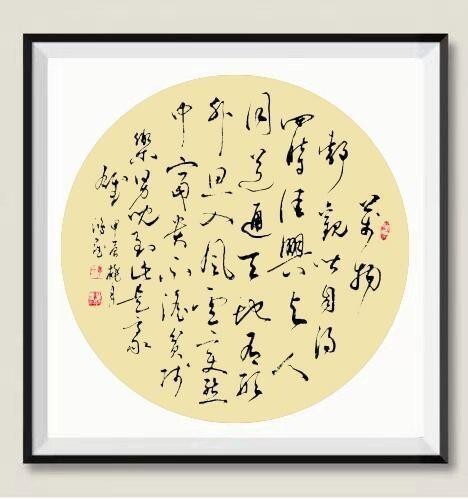 萬物
靜觀皆自得
四時佳興与人
同道通天地有形
外思入風雲變態
中富貴不淫貧賤
樂男兒到此是豪
雄
甲辰 月